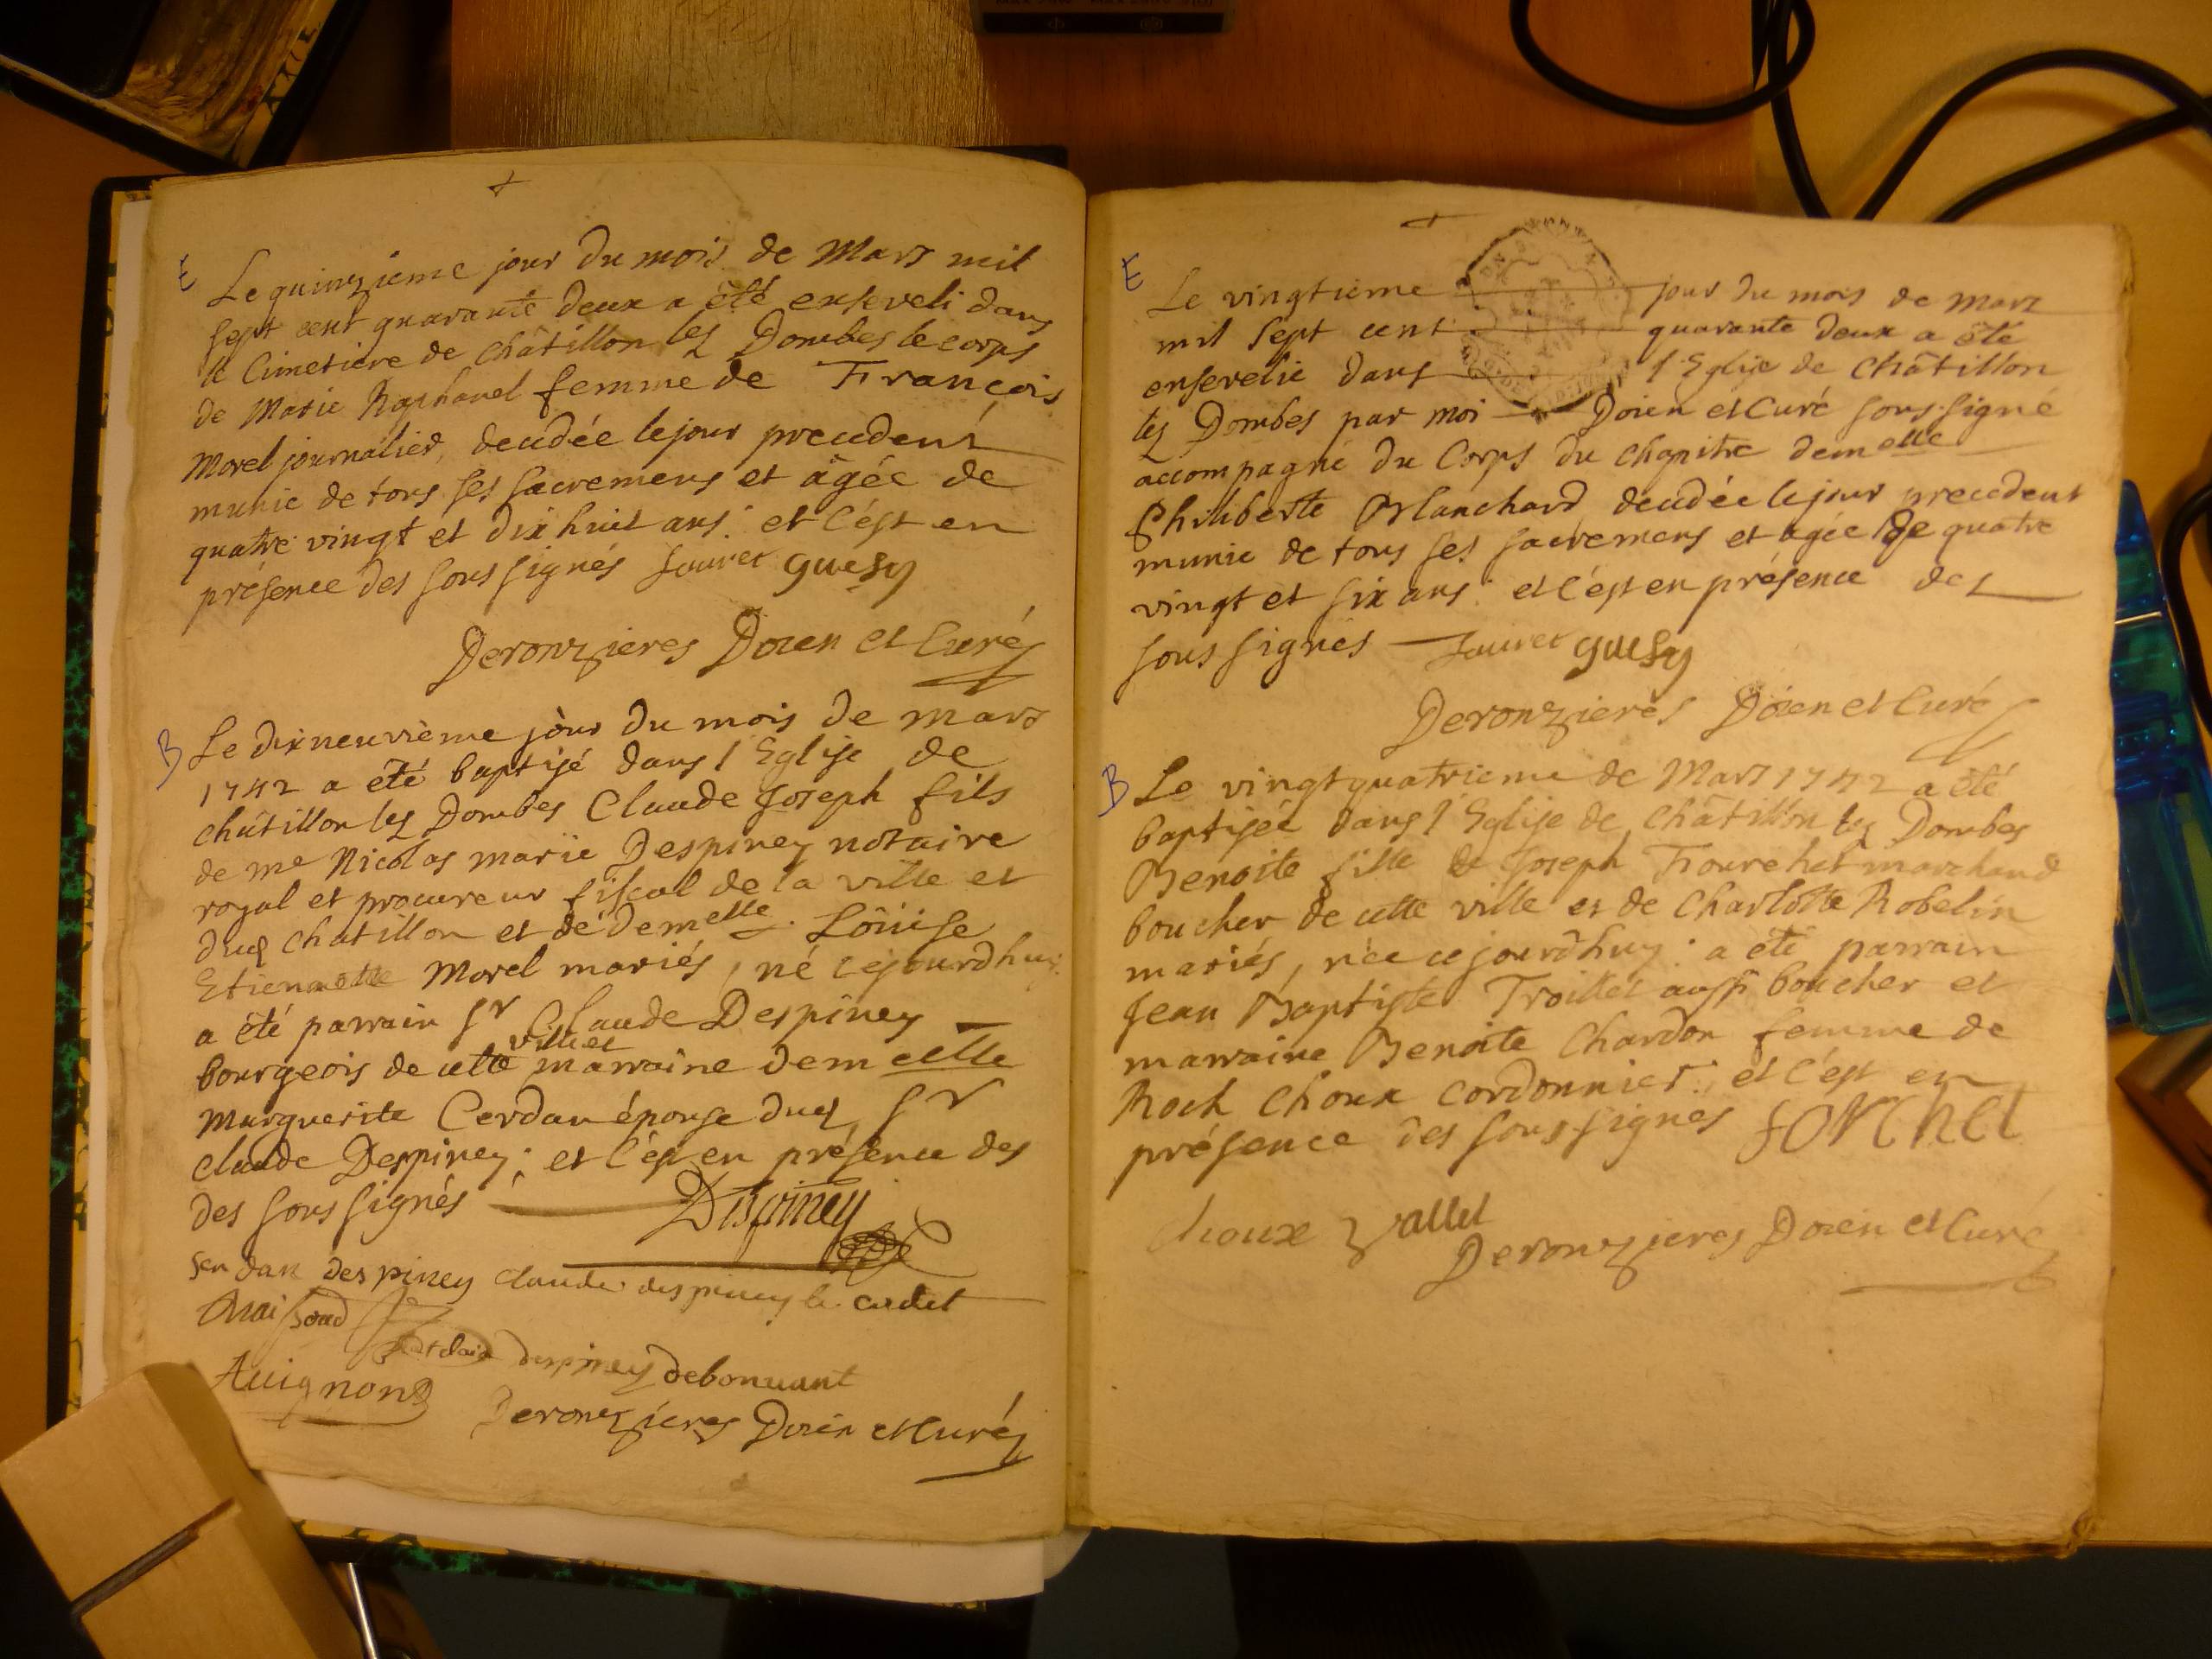 E
Le quinzieme jour du mois de Mars mil
sept cent quarante deux a été enseveli dans
le Cimetiere de châtillon les Dombes le corps
de Marie Raphanel femme de François
Morel journalier, decedée le jour precedent
munie de tous ses sacremens et agée de
quatre vingt et dix huit ans : et c'est en
présence des soussignés Jauret guesy
Deronzieres Doien et Curé
B
Le dixneuvième jour du mois de mars
1742 a été baptisé dans l'Eglise de
châtillon les Dombes Claude Joseph fils
de me Nicolas marie Despiney notaire
royal et procureur fiscal de la ville et
dud chatillon et de demelle Loüise
Etiennette Morel mariés, né cejourdhuy
a été parrain sr Claude Despiney
bourgeois de cette ville et marraine demelle
Marguerite Cerdan épouse dud sr
claude Despiney : et c'est en présence des
des soussignés Despiney
serdan despiney claude despiney le cadet
despiney debonuant
Auignon
Deronzieres Doien et Curé
E
Le vingtieme jour du mois de Mars
mil sept cent quarante deux a été
ensevelie dans l'Eglise de Châtillon
les Dombes par moi Doien et Curé soussigné
accompagné du Corps du chapitre demelle
Philiberte Blanchard decedée le jour precedent
munie de tous ses sacremens et agée de quatre
vingt et six ans : et c'est en présence des
soussignés Jauret guesy
Deronzieres Doien et Curé
B
Le vingtquatrieme de Mars 1742 a été
baptisée dans l'Eglise de Châtillon les Dombes
Benoite fille de Joseph Fourchet marchand
boucher de cette ville et de Charlotte Robelin
mariés, née cejourdhuy : a été parrain
Jean Baptiste Troillet aussi boucher et
marraine Benoite Chardon femme de
Roch Choux cordonnier : et c'est en
présence des soussignés forchet
choux Vallet
Deronzieres Doien et Curé